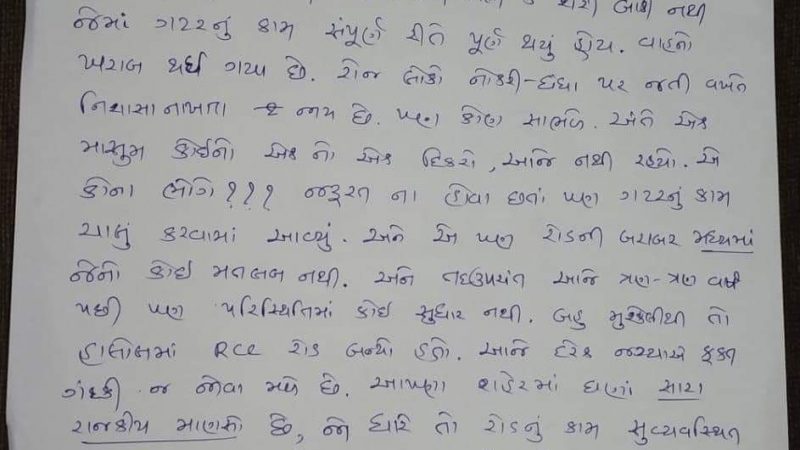 શેરી બાકી નથી
જેમાં ગટરનું કામ સંપૂર્ણ રીતે પૂર્ણ થયું હોય. વાહનો
ખરાબ થઈ ગયા છે. રોજ લોકો નોકરી-ધંધા પર જતી વખતે
નિસાસા નાખતા જ જાય છે. પણ કોણ સાંભળે. અંતે એક
માસૂમ કોઈનો એક નો એક દિકરો, આજે નથી રહ્યો. એ
કોના લીધે??? જરૂરત ના હોવા છતાં પણ ગટરનું કામ
ચાલું કરવામાં આવ્યું. અને એ પણ રોડની બરાબર મધ્યમાં
જેનો કોઈ મતલબ નથી. અને તદઉપરાંત આજે ત્રણ-ત્રણ વર્ષ
પછી પણ પરિસ્થિતિમાં કોઈ સુધાર નથી. બહુ મુશ્કેલીથી તો
હાલોલમાં RCC રોડ બન્યો હતો. આજે દરેક જગ્યાએ ફક્ત
ગંદકી જ જોવા મળે છે. આપણા શહેરમાં ઘણાં સારા
રાજકીય માણસો છે, જો ધારે તો રોડનું કામ સુવ્યવસ્થિત